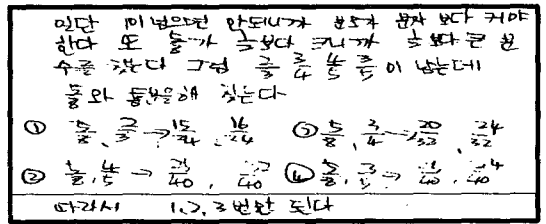 일단 1이 넘으면 안되니까 분모가 분자 보다 커야
한다 또 5/8가 보다 크니까 보다 큰 분
수를 찾는다 그럼 2/3 3/4 4/5 3/5 이 남는데
5/8와 통분을해 찾는다
① 5/8, 2/3 → 15/24, 16/24 ③ 5/8, 3/4 → 20/32, 24/32
② 5/8, 4/5 → /40, /40 ④ 5/8, 3/ → /40, /40
따라서 1, 2, 3 번만 된다